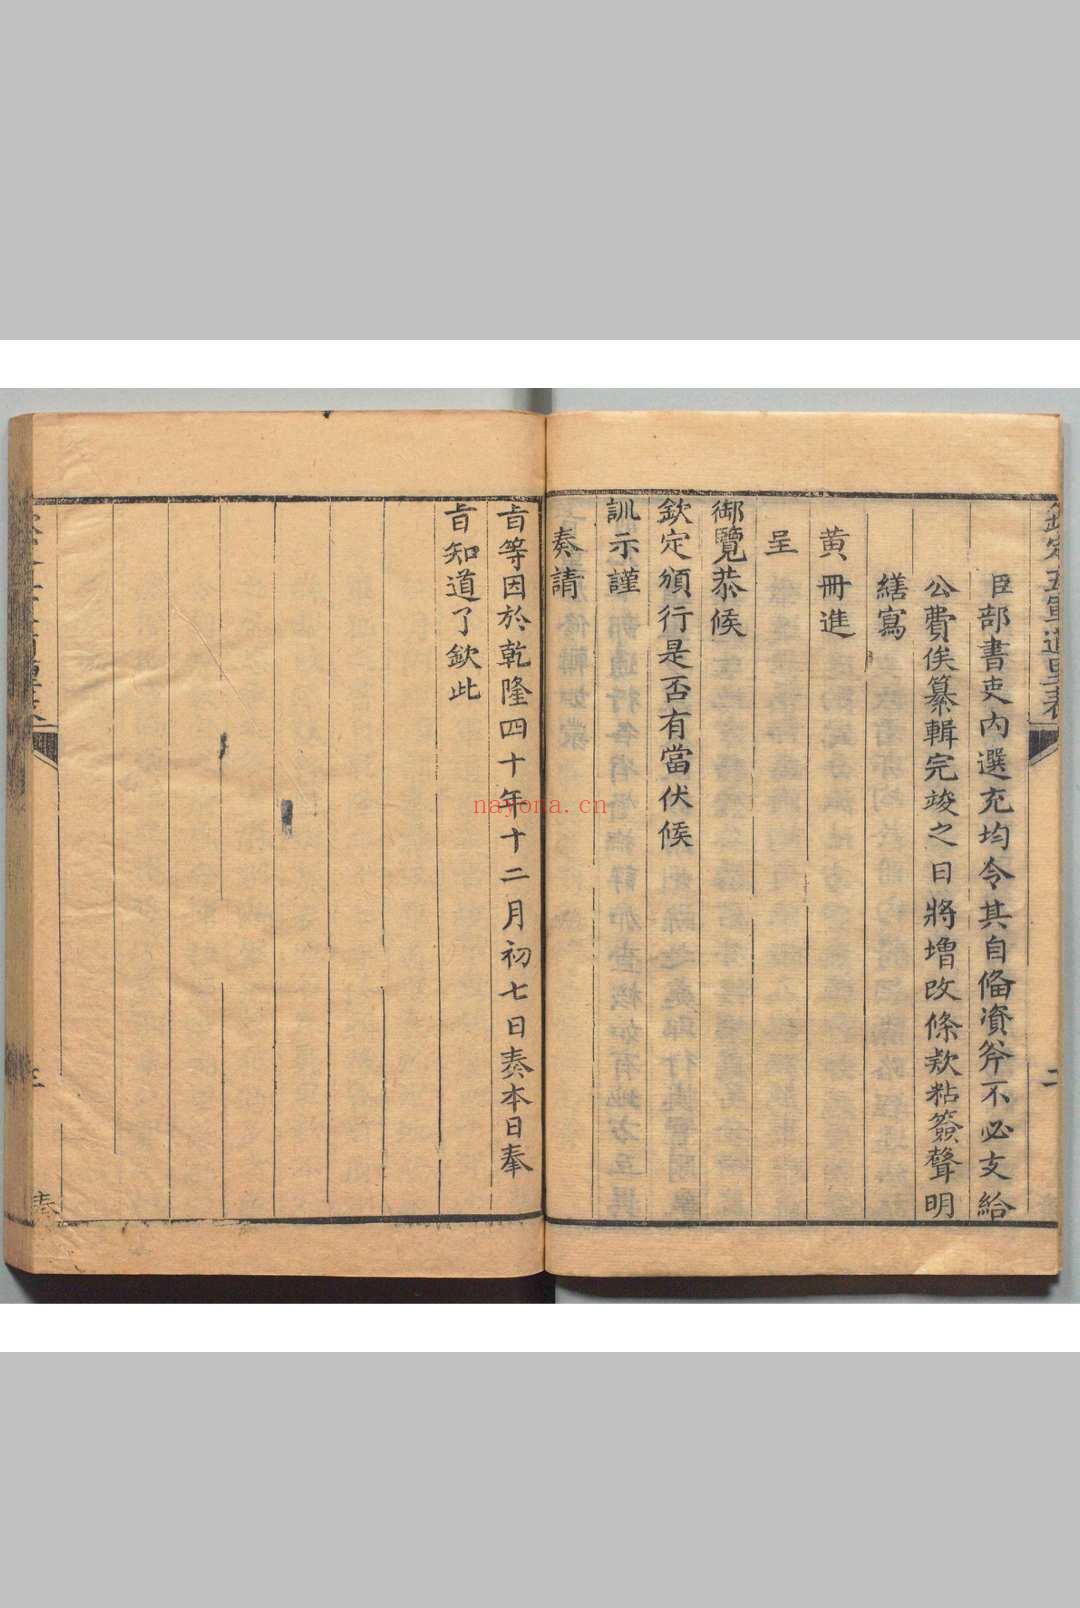 臣部書吏內選充均令其自備資斧不必支給
公費俟纂輯完竣之日將增改條款粘簽聲明
繕寫
黃冊進
呈
御覽恭候
欽定頒行是否有當伏候
訓示謹
奏請
旨等因於乾隆四十年十二月初七日奏本日奉
旨知道了欽此
欽定五軍道里表
二
三
nayona.cn